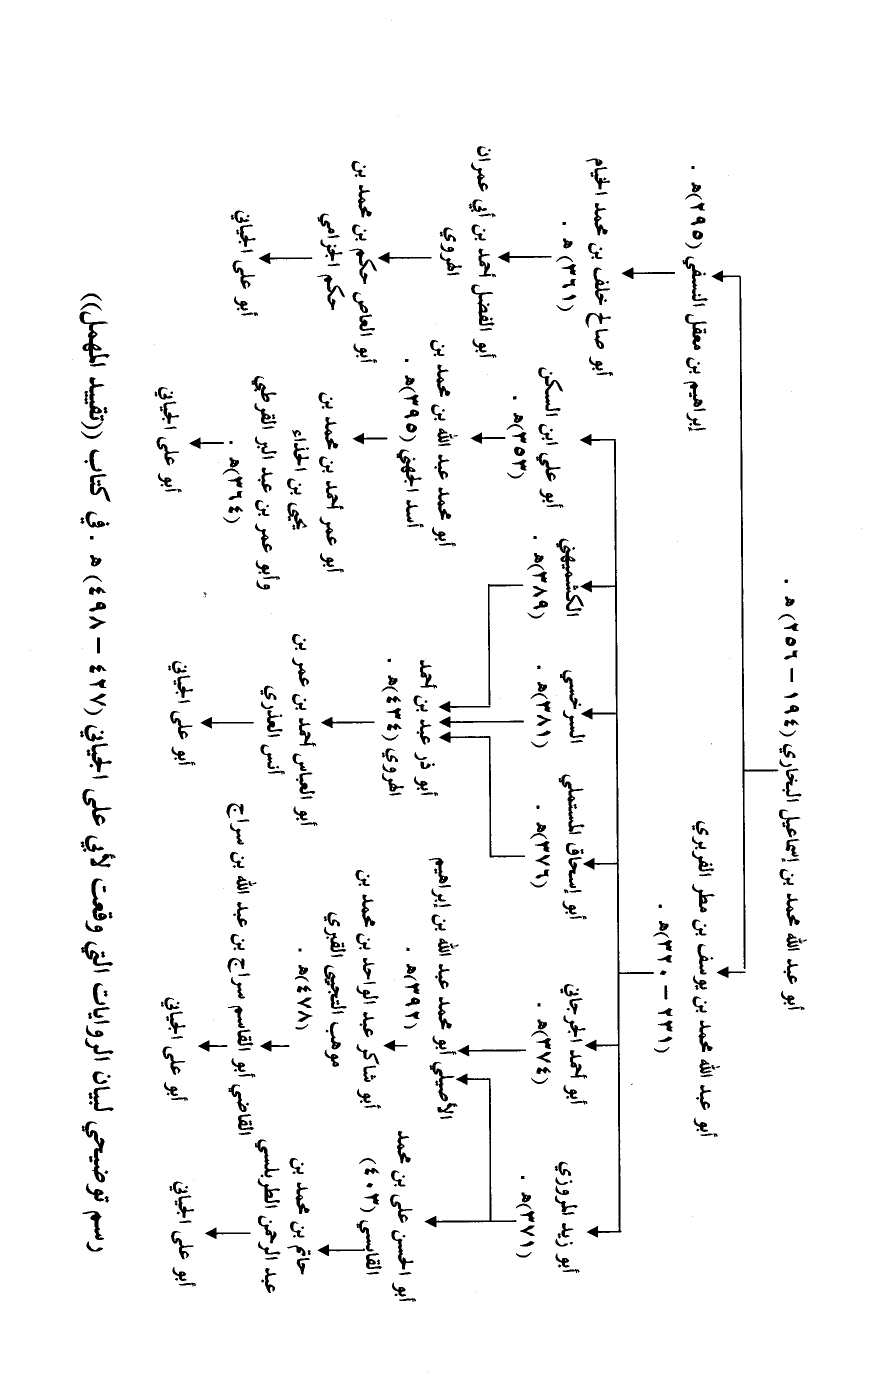 أبو عبد الله محمد بن إسماعيل البخاري (١٩٤ – ٢٥٦)ه .
أبو عبد الله محمد بن يوسف بن مطر الفربري
(٢٣١ – ٣٢٠)ه .
إبراهيم بن معقل النسفي (٢٩٥)ه .
أبو زيد المروزي
(٣٧١)ه .
أبو أحمد الجرجاني
(٣٧٤)ه .
أبو إسحاق المستملي
(٣٧٦)ه .
السرخسي
(٣٨١)ه .
الكشميهني
(٣٨٩)ه .
أبو علي ابن السكن
(٣٥٣)ه .
أبو صالح خلف بن محمد الخيام
(٣٦١)ه .
أبو الحسن علي بن محمد
القابسي (٤٠٣)
أبو محمد عبد الله بن إبراهيم
الأصيلي
(٣٩٢)ه .
أبو ذر عبد بن أحمد
الهروي (٤٣٤)ه .
أبو محمد عبد الله بن محمد بن
أسد الجهني (٣٩٥)ه .
أبو الفضل أحمد بن أبي عمران
الهروي
حاتم بن محمد بن
عبد الرحمن الطرابلسي
أبو شاكر عبد الواحد بن محمد بن
موهب التجيبي القبري
(٤٧٨)ه .
القاضي أبو القاسم سراج بن عبد الله بن سراج
أبو العباس أحمد بن عمر بن
أنس العذري
أبو عمر أحمد بن محمد بن
يحيى بن الحذاء
وأبو عمر بن عبد البر القرطبي
(٣٦٤)ه .
أبو العاص حكم بن محمد بن
حكم الجزامي
أبو علي الجياني
أبو علي الجياني
أبو علي الجياني
أبو علي الجياني
أبو علي الجياني
رسم توضيحي لبيان الروايات التي وقعت لأبي علي الجياني (٤٢٧ – ٤٩٨)ه . في كتاب ((تقييد المهمل))